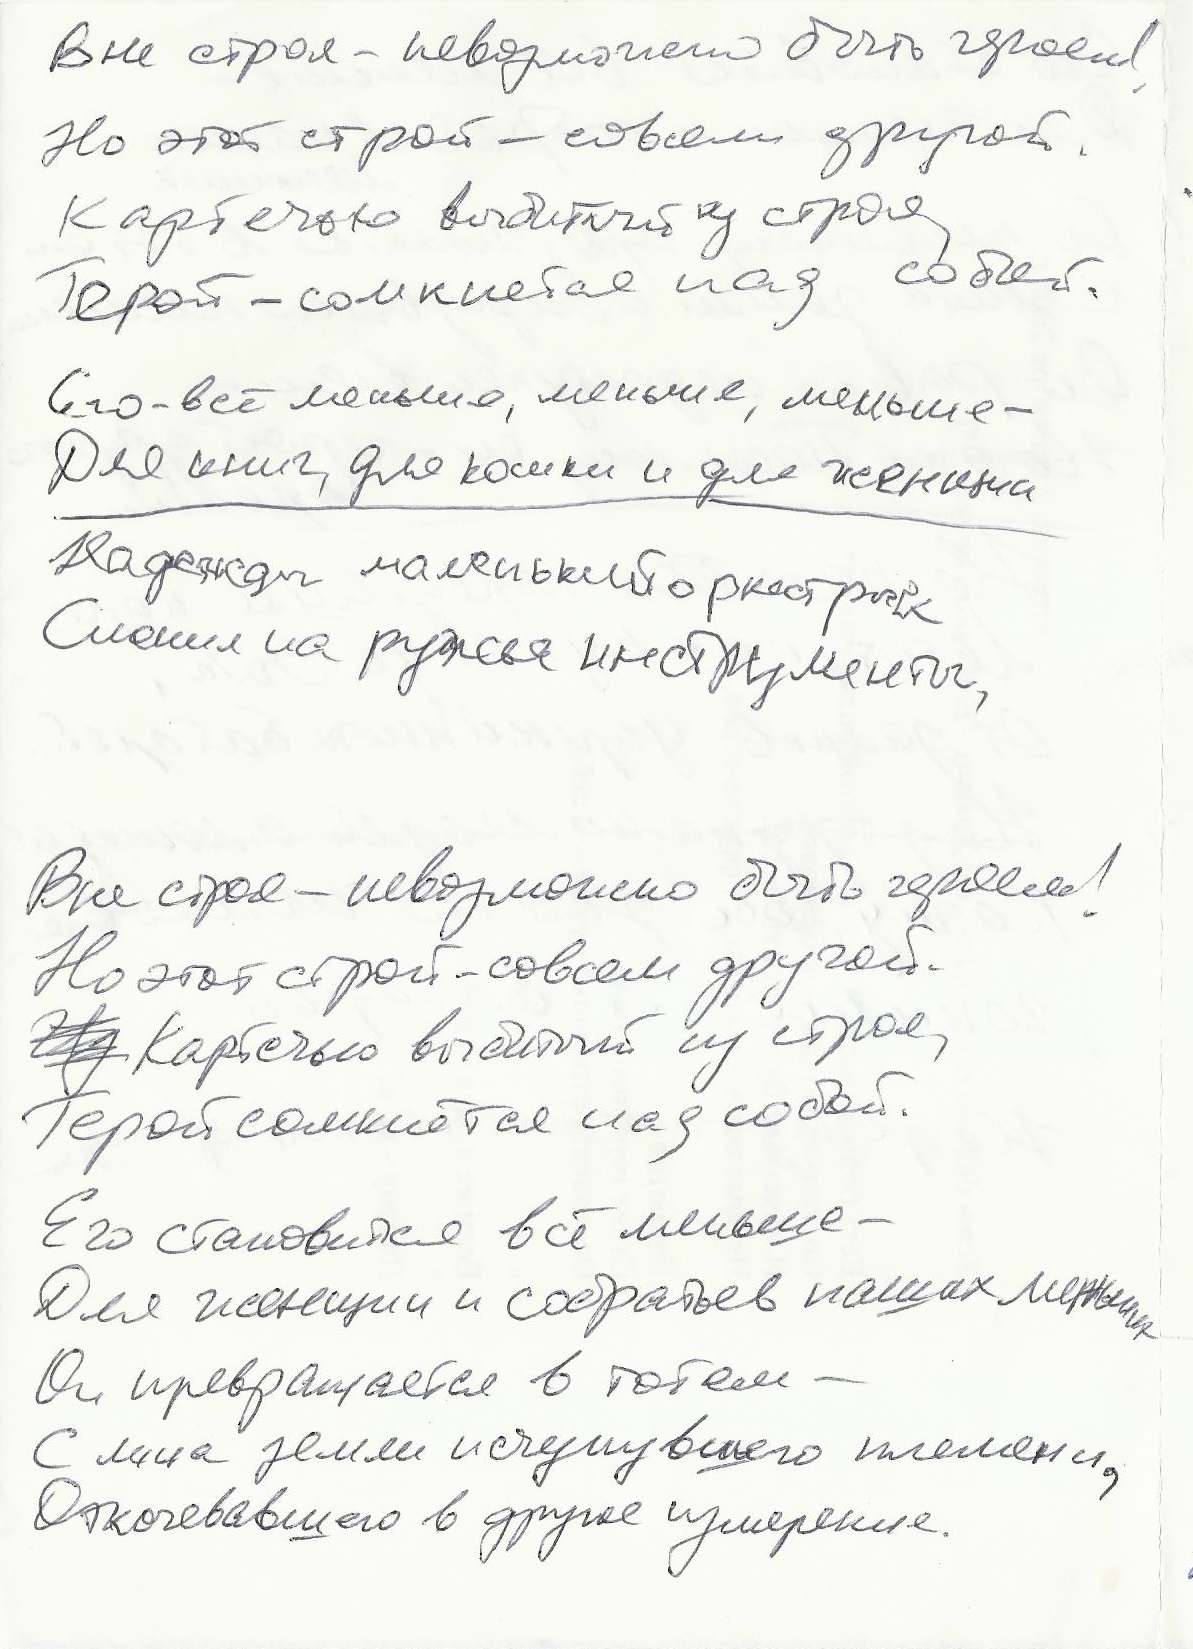 Вне строя – невозможно быть героем!
Но этот строй – совсем другой.
Картечью выбитый из строя,
Герой – сомкнется над собой.
Его – всё меньше, меньше, меньше –
Для книг, для кошки и для женщины
Надежды маленький оркестрик
Сменил на ружья инструменты,
Вне строя – невозможно быть героем!
Но этот строй – совсем другой.
Картечью выбитый из строя,
Герой сомкнётся над собой.
Его становится всё меньше –
Для женщин и собратьев наших меньших
Он превращается в тотем –
С лица земли исчезнувшего племени,
Откочевавшего в другое измерение.